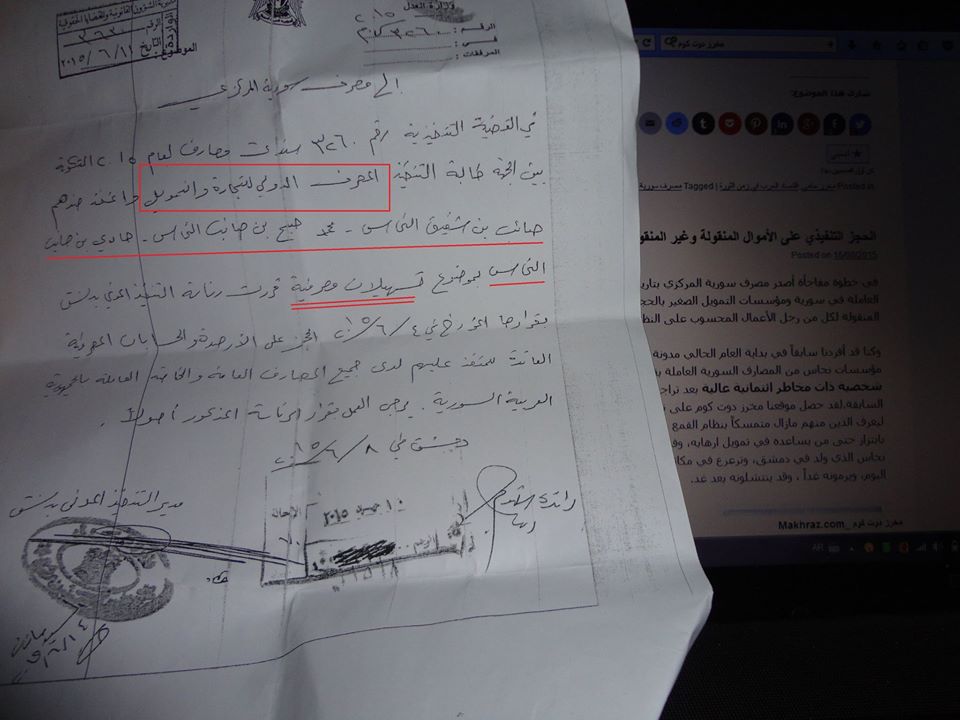 وزارة العدل
٢٠١٥
الرقم: ٣٢٦٠
في:
المرفقات:
مديرية الشؤون القانونية والقضايا الحقوقية
الواردة
الرقم ٣٦٣٠
التاريخ ٢٠١٥/٦/١١
الموضوع:
الى مصرف سورية المركزي
في القضية التنفيذية رقم ٣٢٦٠ سندات مصارف لعام ٢٠١٥ المتكونة
بين الجهة طالبة التنفيذ المصرف الدولي للتجارة والتمويل والمنفذ ضدهم
صائب بن شفيق النحاس - محمد صبيح بن صائب النحاس - هادي بن صائب
النحاس بموضوع تسهيلات مصرفية قررت رئاسة التنفيذ المدني بدمشق
بقرارها المؤرخ في ٤/٦/٢٠١٥ الحجز على الأرصدة والحسابات المصرفية
العائدة للمنفذ عليهم لدى جميع المصارف العامة والخاصة العاملة بالجمهورية
العربية السورية. يرجى العمل بقرار الرئاسة المذكور أصولاً.
دمشق في ٨/٦/٢٠١٥
مدير التنفيذ المدني بدمشق
١٠ ٢٠١٥
الإحالة
الرقم
محرز دوت كوم
شارك هذا الموضوع:
أعجبني
Posted in
Tagged
الحجز التنفيذي على الأموال المنقولة وغير المنقو
Posted on 16/08/2015
في خطوة مفاجأة أصدر مصرف سورية المركزي بتاري
العاملة في سورية ومؤسسات التمويل الصغير بالحج
المنقولة لكل من رجل الأعمال المحسوب على النظ
وكنا قد أفردنا سابقاً في بداية العام الحالي مدونة
مؤسسات نحاس من المصارف السورية العاملة ب
شخصية ذات مخاطر ائتمانية عالية بعد تراج
السابقة.لقد حصل موقعنا محرز دوت كوم على
ليعرف الذين منهم مازال متمسكاً بنظام القمع
بابتزاز حتى من يساعده في تمويل ارهابه، وق
نحاس الذي ولد في دمشق، وترعرع في مكا
اليوم، ويرمونه غداً ، وقد ينتشلونه بعد غد.
محرز دوت كوم_ Makhraz.com
AR